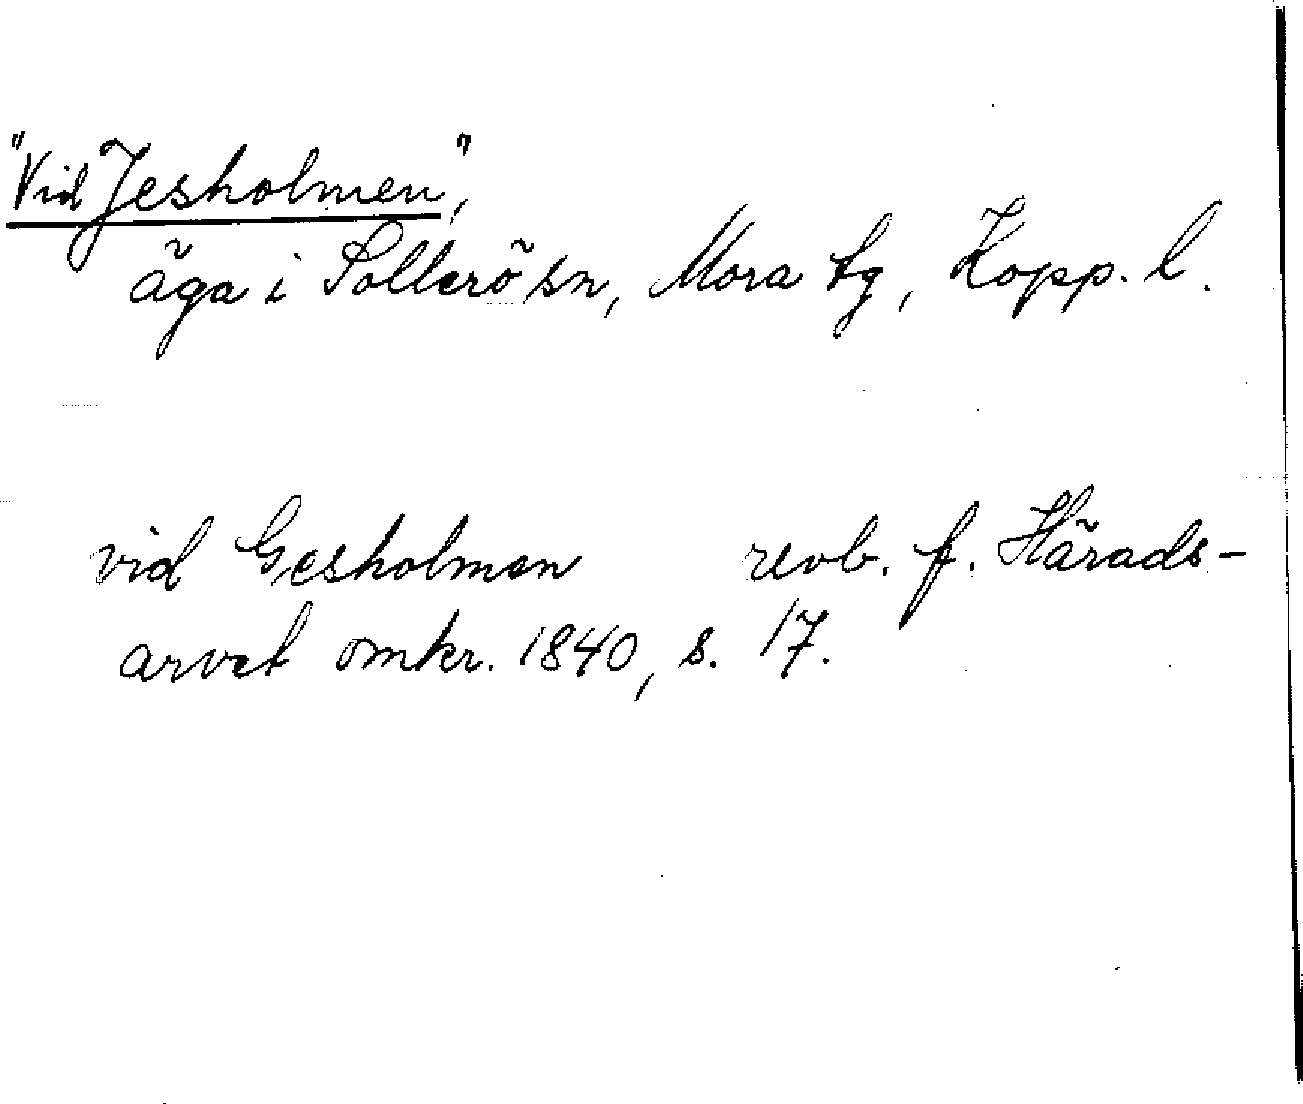 "Vid Jesholmen",
äga i Sollerö sn, Mora tg, Kopp. l.
vid Gesholmen revb. f. Härads-
arvet omkr. 1840, s. 17.